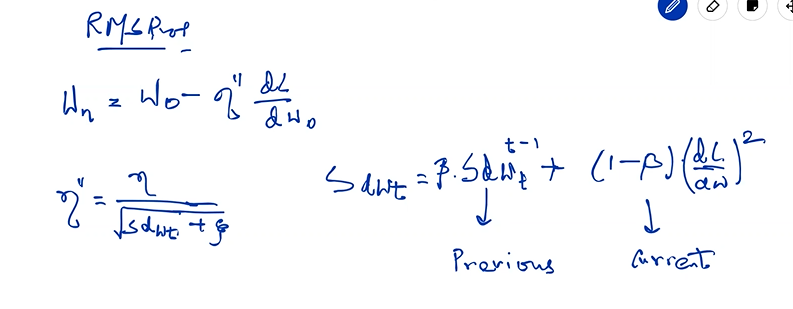 RMSProp
Wn = Wo - η" dL/dWo
η" = η/√(Sdwt + ε)
Sdwt = β.Sdwt^t-1 + (1-β)(dL/dw)²
Previous Current